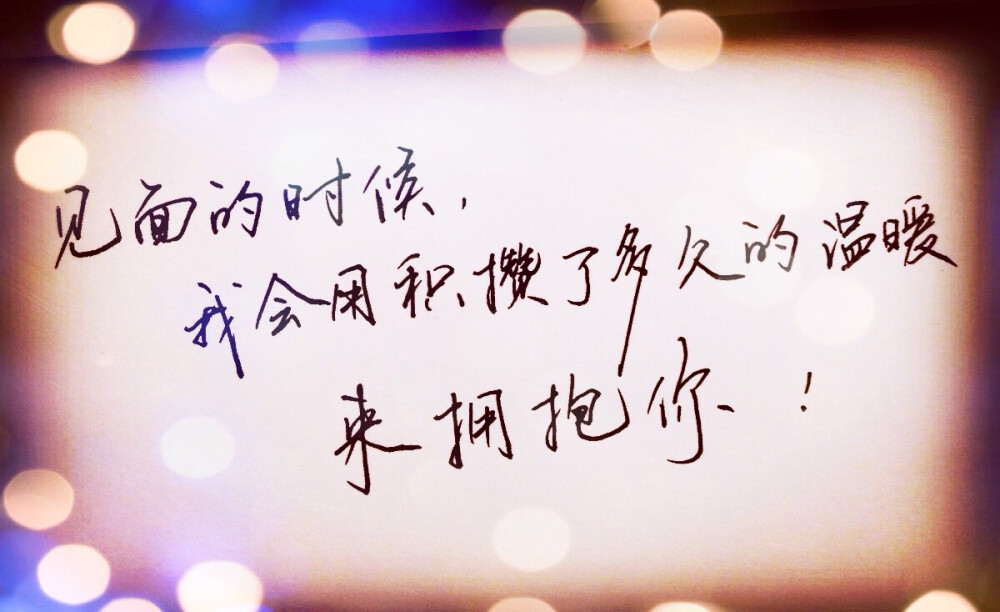 见面的时候，
我会用积攒了多久的温暖
来拥抱你、！